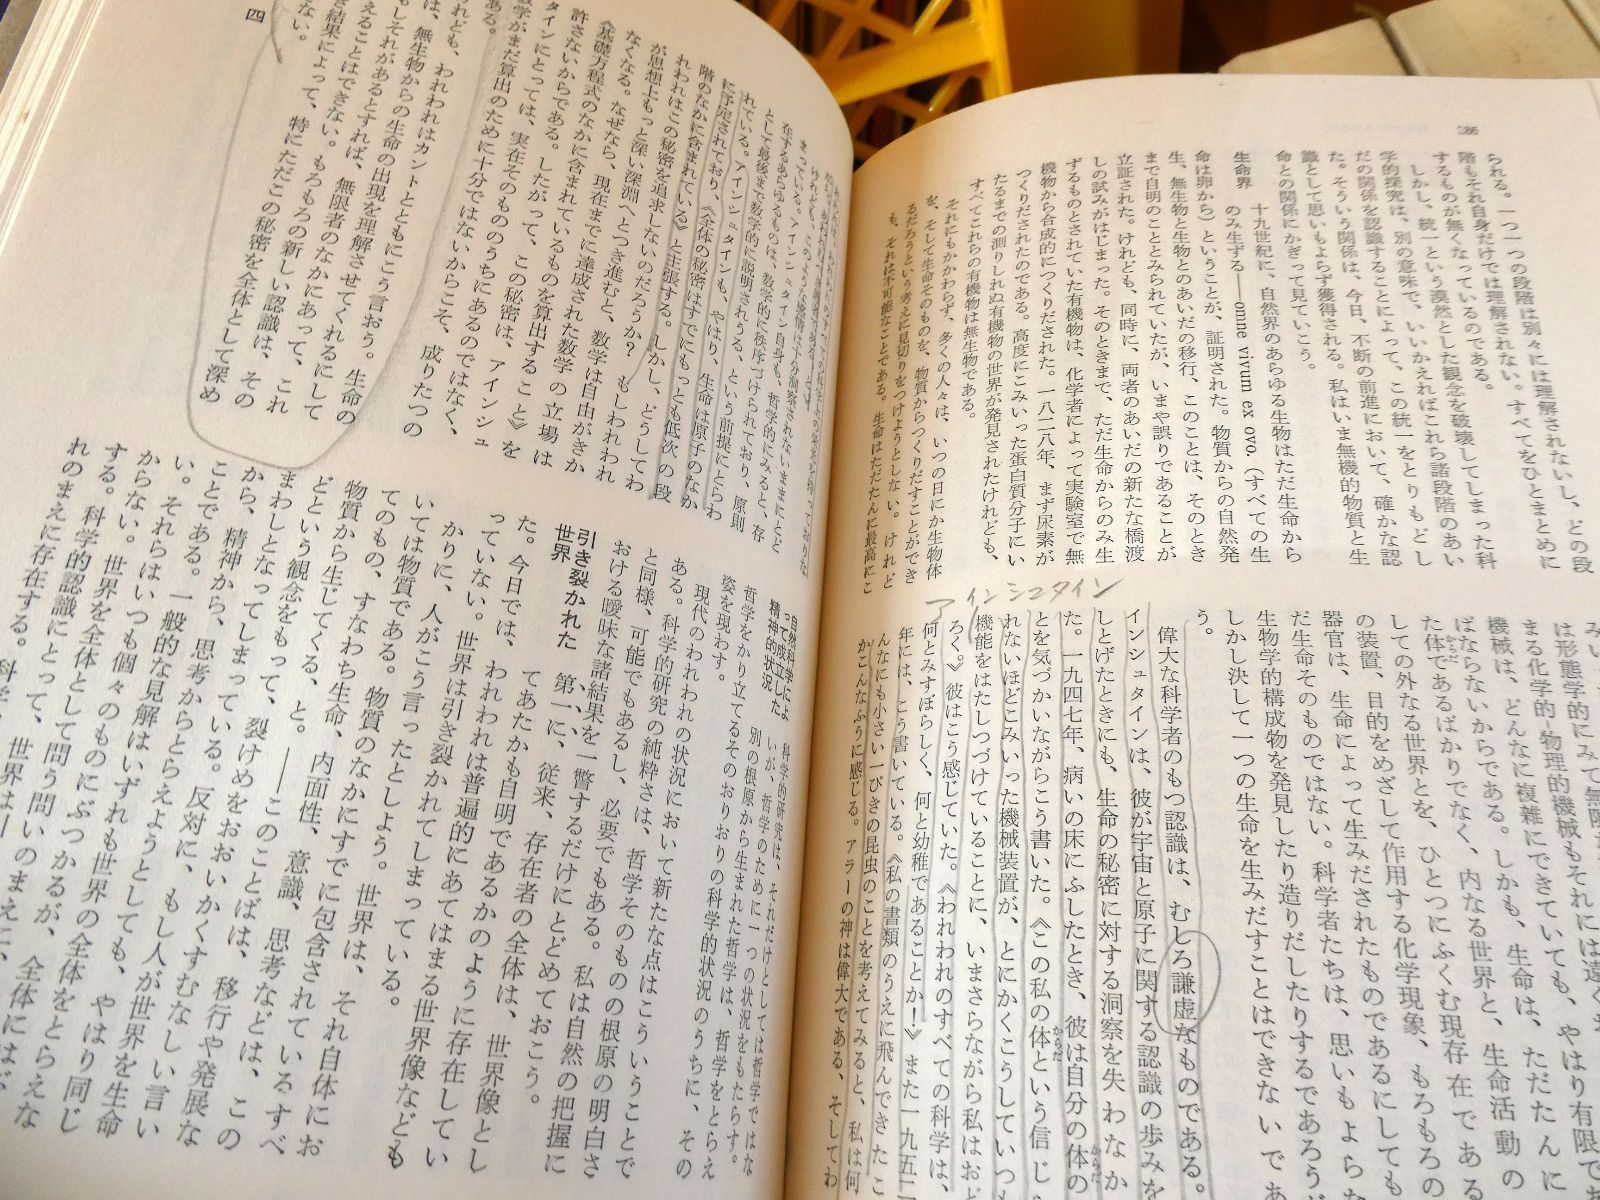 286
られる。一つ一つの段階は別々には理解されないし、どの段
階もそれ自身だけでは理解されない。すべてをひとまとめに
するものが無くなっているのである。
しかし、統一という漠然とした観念を破壊してしまった科
学的探究は、別の意味で、いいかえればこれら諸段階のあい
だの関係を認識することによって、この統一をとりもどし
た。そういう関係は、今日、不断の前進において、確かな認
識として思いもよらず獲得される。私はいま無機的物質と生
命との関係にかぎって見ていこう。
生命界
十九世紀に、自然界のあらゆる生物はただ生命から
のみ生ずる――omne vivum ex ovo（すべての生
命は卵から）ということが、証明された。物質からの自然発
生、無生物と生物とのあいだの移行、このことは、そのとき
まで自明のこととみられていたが、いまや誤りであることが
立証された。けれども、同時に、両者のあいだの新たな橋渡
しの試みがはじまった。そのときまで、ただ生命からのみ生
ずるものとされていた有機物は、化学者によって実験室で無
機物から合成的につくりだされた。一八二八年、まず尿素が
つくりだされたのである。高度にこみいった蛋白質分子にい
たるまでの測りしれぬ有機物の世界が発見されたけれども、
すべてこれらの有機物は無生物である。
それにもかかわらず、多くの人々は、いつの日にか生物体
を、そして生命そのものを、物質からつくりだすことができ
るだろうという考えに見切りをつけようとしない。けれど
も、それは不可能なことである。生命はただたんに最高にこ
は形態学的にみて無限
機械は、どんなに複雑にできていても、やはり有限で
まる化学的―物理的機械もそれには遠く
ばならないからである。しかも、生命は、ただたんに
た体であるばかりでなく、内なる世界と、生命活動の
しての外なる世界とを、ひとつにふくむ現存在である
の装置、目的をめざして作用する化学現象、もろもろの
器官は、生命によって生みだされたものであるにしても
だ生命そのものではない。科学者たちは、思いもよらな
生物学的構成物を発見したり造りだしたりするであろう
しかし決して一つの生命を生みだすことはできないであ
う。
偉大な科学者のもつ認識は、むしろ謙虚なものである。
インシュタインは、彼が宇宙と原子に関する認識の歩みを
しとげたときにも、生命の秘密に対する洞察を失わなか
た。一九四七年、病いの床にふしたとき、彼は自分の体の
とを気づかいながらこう書いた。《この私の体という信じ
れないほどこみいった機械装置が、とにかくこうしていつも
機能をはたしつづけていることに、いまさらながら私はおど
ろく。》彼はこう感じていた。《われわれのすべての科学は、
何とみすぼらしく、何と幼稚であることか！》また一九五二
年には、こう書いている。《私の書類のうえに飛んできたこ
んなにも小さい一ぴきの昆虫のことを考えてみると、私は何
かこんなふうに感じる。アラーの神は偉大である、そしてわ
アインシュタイン
まっている。アインシュタイン自身も、哲学的にみると、存
在するあらゆるものは、数学的に秩序づけられており、原則
として最後まで数学的に説明されうる、という前提にとらわ
れている。アインシュタインも、やはり、生命は原子のなか
に予定されており、《全体の秘密はすでにもっとも低次の段
階のなかに含まれている》と主張する。しかし、どうしてわ
れわれはこの秘密を追求しないのだろうか？ もしわれわれ
が思想上もっと深い深淵へとつき進むと、数学は自由がきか
なくなる。なぜなら、現在までに達成された数学の立場は
《基礎方程式のなかに含まれているものを算出すること》を
許さないからである。したがって、この秘密は、アインシュ
タインにとっては、実在そのもののうちにあるのではなく、
数学がまだ算出のために十分ではないからこそ、成りたつの
である。
けれども、われわれはカントとともにこう言おう。生命の
は、無生物からの生命の出現を理解させてくれるにして
もしそれがあるとすれば、無限者のなかにあって、これ
えることはできない。もろもろの新しい認識は、その
き結果によって、特にただこの秘密を全体として深め
ない。
四
自然科学によ
って成立した
精神的状況
科学的研究は、それだけとしては哲学ではな
いが、哲学のために一つの状況をもたらす。
別の根原から生まれた哲学は、哲学をとらえ
哲学をかり立てるそのおりおりの科学的状況のうちに、その
姿を現わす。
現代のわれわれの状況において新たな点はこういうことで
ある。科学的研究の純粋さは、哲学そのものの根原の明白さ
と同様、可能でもあるし、必要でもある。私は自然の把握に
おける曖昧な諸結果を一瞥するだけにとどめておこう。
引き裂かれた
世界
第一に、従来、存在者の全体は、世界像とし
てあたかも自明であるかのように存在してい
た。今日では、われわれは普遍的にあてはまる世界像なども
っていない。世界は引き裂かれてしまっている。
かりに、人がこう言ったとしよう。世界は、それ自体にお
いては物質である。物質のなかにすでに包含されているすべ
てのもの、すなわち生命、内面性、意識、思考などは、この
物質から生じてくる、と。――このことばは、移行や発展な
どという観念をもって、裂けめをおおいかくすむなしい言い
まわしとなってしまっている。反対に、もし人が世界を生命
から、精神から、思考からとらえようとしても、やはり同じ
ことである。一般的な見解はいずれも世界の全体をとらえな
い。それらはいつも個々のものにぶつかるが、全体にはぶ
からない。世界を全体として問う問いのまえに、
する。科学的認識にとって、世界は―
れのまえに存在する。科学